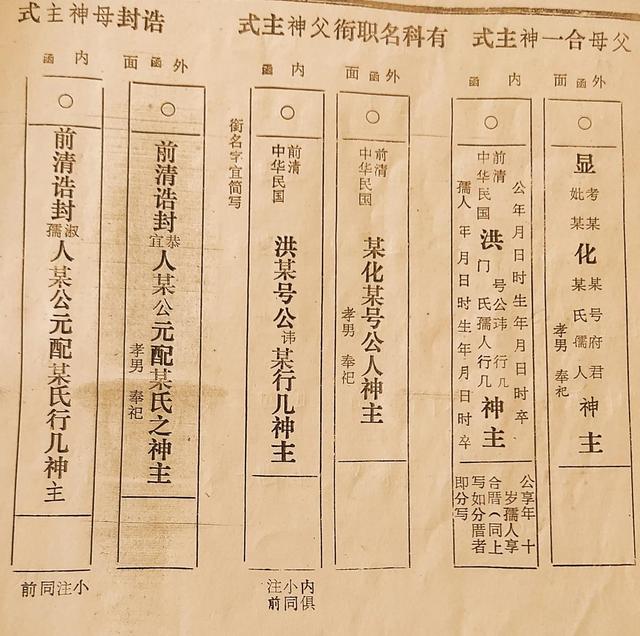 父母合一神主式
外函面
○
显
考某
妣某
化
某号府君
某氏孺人
神主
孝男 奉祀
内函
○
前清
中华民国
公年月日时生年月日时卒
洪
号公讳行几
门氏孺人行几
孺人年月日时生年月日时卒
神主
公享年十
岁孺人享
合厝(同上
写如分厝者
即分写
有科名职衔父神主式
外函面
○
前清
中华民国
某化某号公人神主
孝男 奉祀
内函
○
前清
中华民国
洪某号公讳某行几神主
内俱
小同
注前
衔名字宜简写
诰封母神主式
外函面
○
前清诰封恭宜人某公元配某氏之神主
孝男 奉祀
内函
○
前清诰封淑孺人某公元配某氏行几神主
小注同前